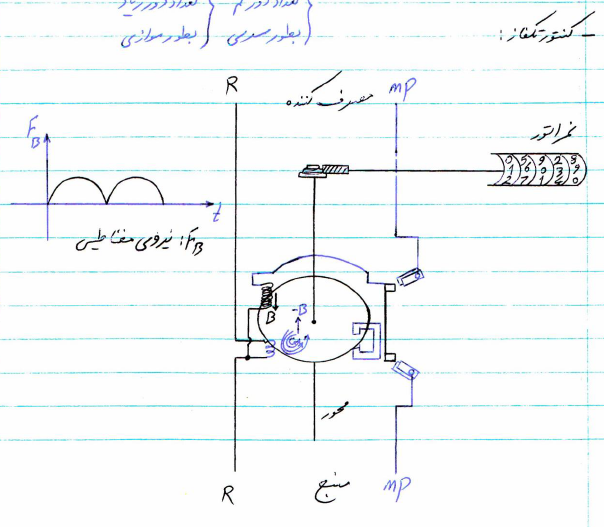 تعداد دور کم { تعداد دور زیاد
بطور سری { بطور موازی
– کنتور تکفاز :
R
مصرف کننده
MP
نمراتور
0 5 9 2 8
1 6 0 3 9
2 7 1 4 0
F_B
t
F_B : نیروی مغناطیسی
B
-B
محور
R
منبع
MP